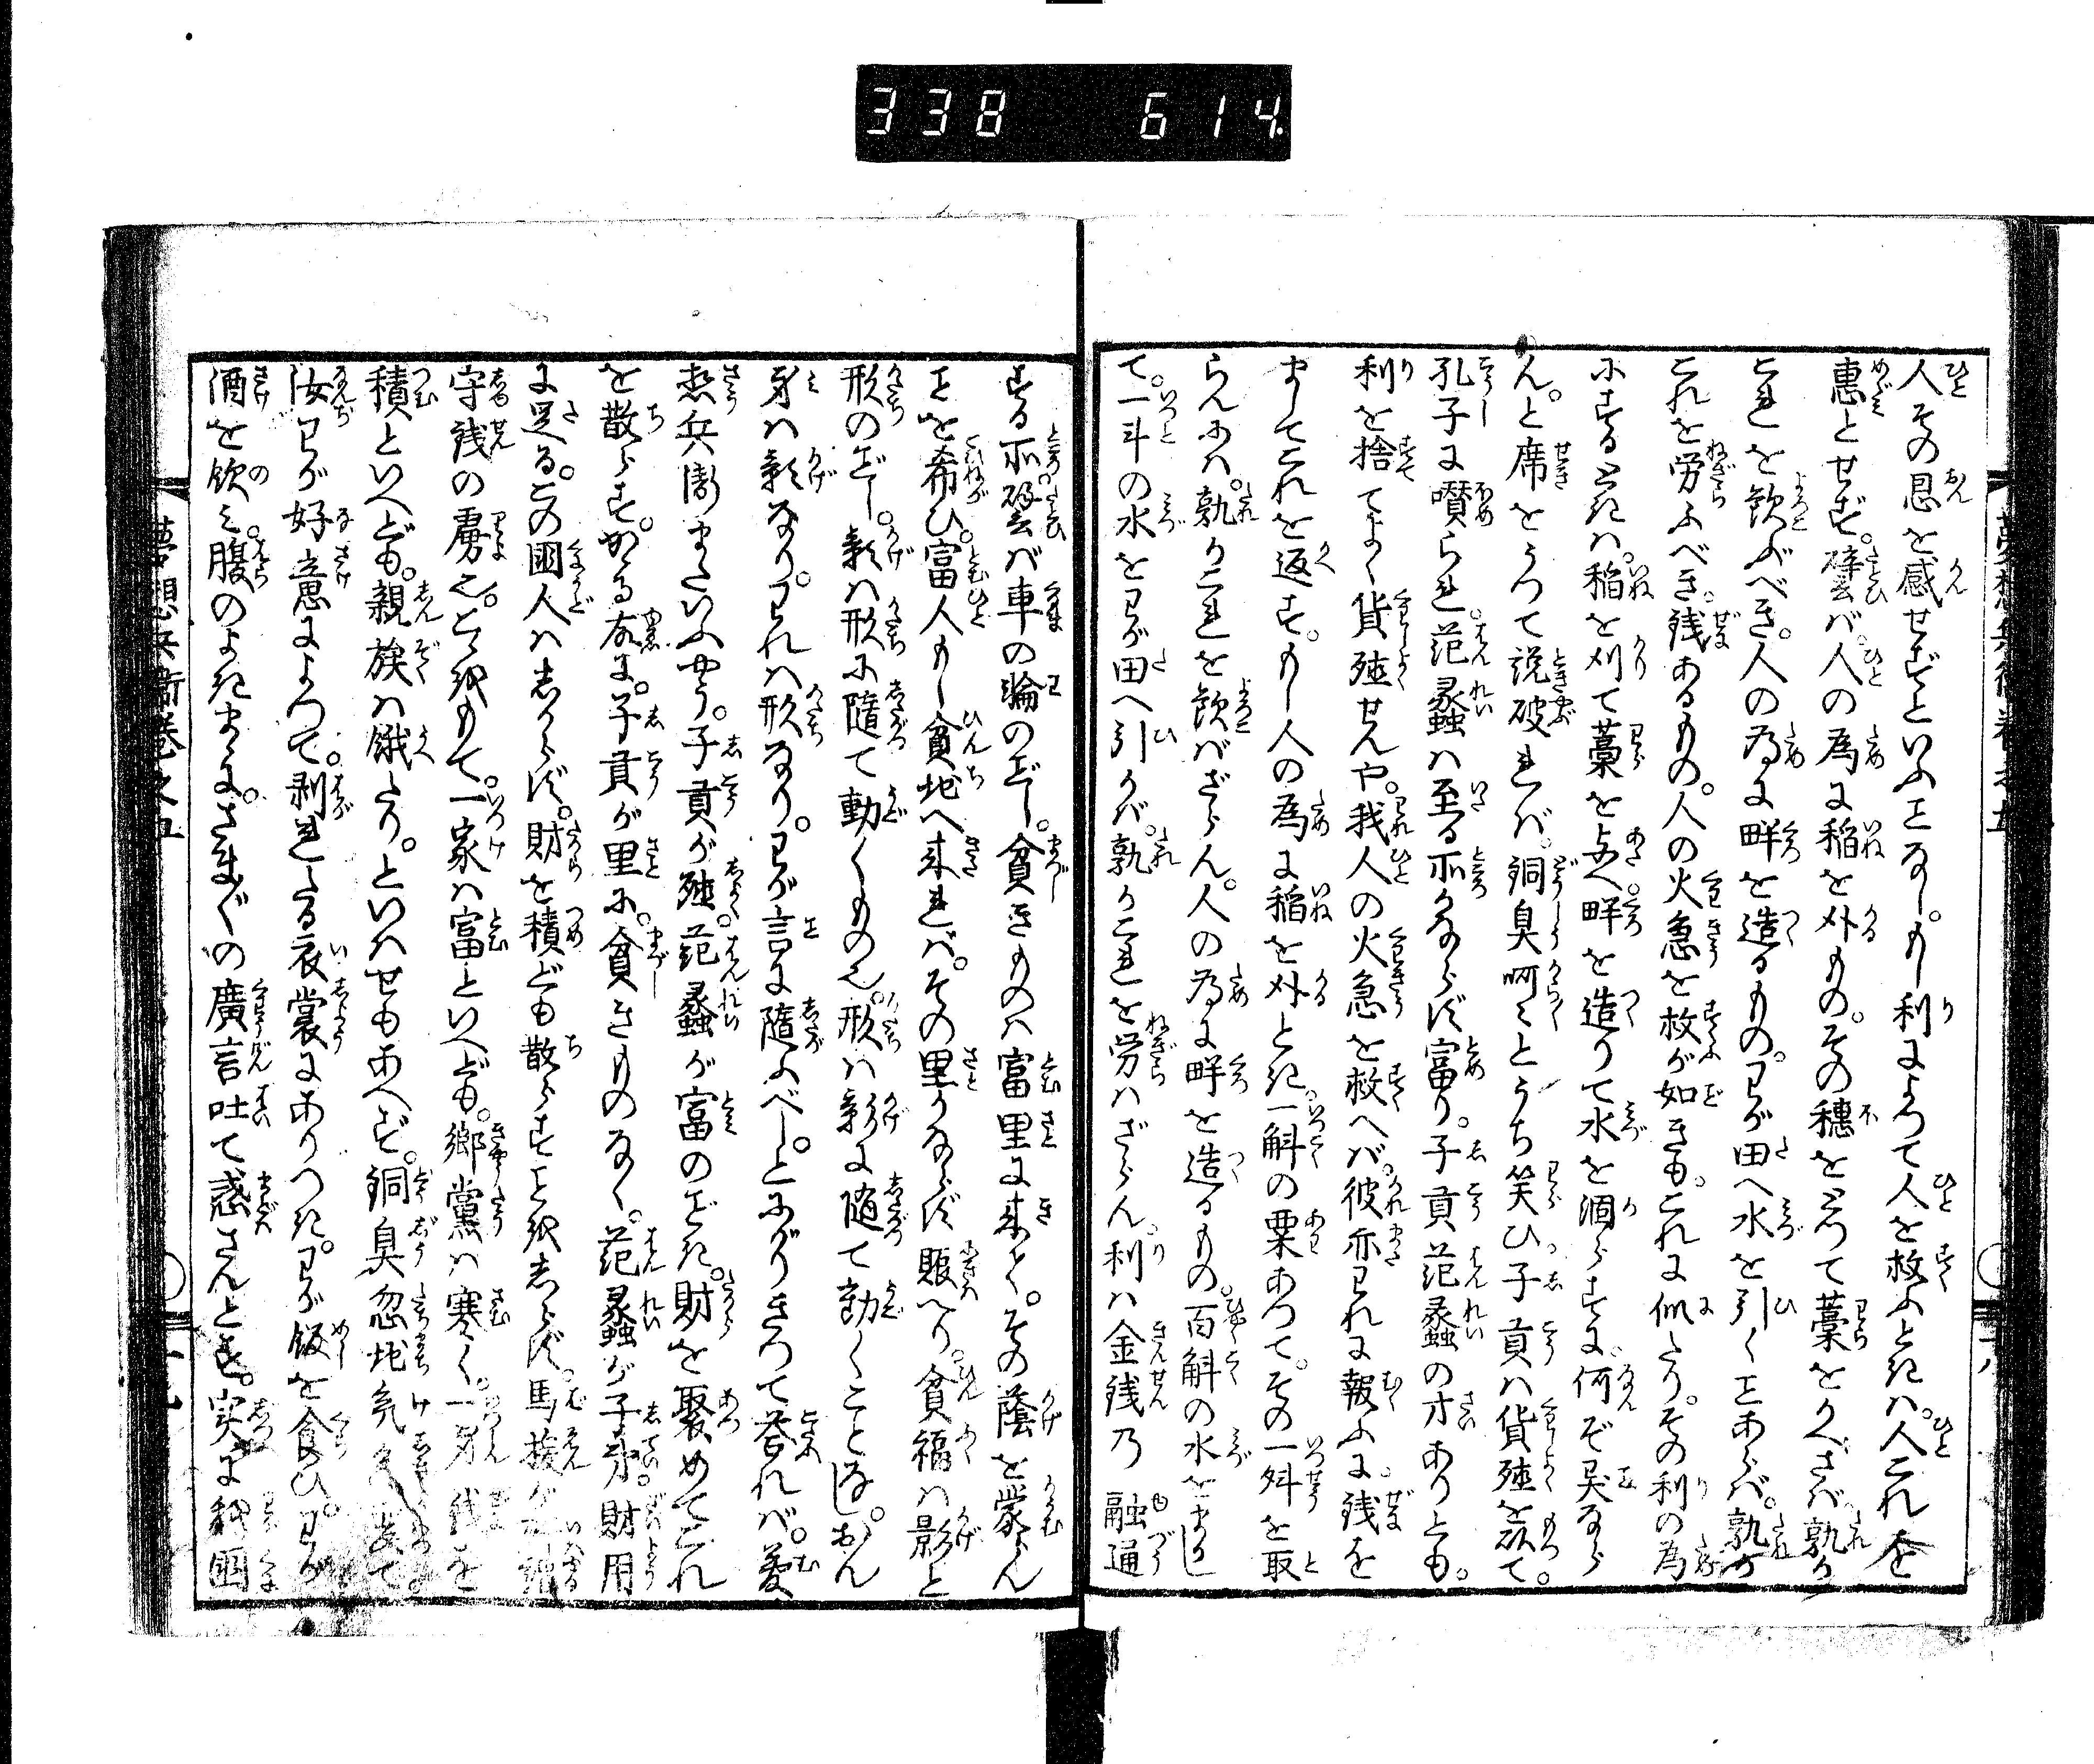 338 614
人その恩を感せずといふことなし。もし利によつて人を救ふときは。人これを
惠とせず。譬ば。人の為に稲を刈もの。その穗をとつて藁をかへさば孰か
これを歓ぶべき。人の為に畔を造るもの。わが田へ水を引くことあらば。孰か
これを労ふべき。残あるもの。人の火急を救が如きも。これに似たり。その利の為
にするときは。稲を刈て藁を与へ。畔を造りて水を涸らすに。何ぞ異なら
ん。と席をうつて説破れば。銅臭呵々とうち笑ひ。子貢は貨殖を以て。
孔子に嘖られ。范蠡は至る所かならず富り。子貢范蠡の才ありとも。
利を捨てよく貨殖せんや。我人の火急を救へば。彼亦われに報ふに。銭を
ましてこれを返す。もし人の為に稲を刈とき。一斛の粟あつて。その一舛を取
らんには。孰かこれを歓ばざらん。人の為に畔を造るもの。百斛の水をまし
て。一斗の水をわが田へ引かば。孰かこれを労はざらん。利は金銭乃融通
する所譬ば車の輪のごとし。貧きものは富里に来て。その蔭を蒙らん
ことを希ひ。富人もし貧地へ来れば。その里かならず賑へり。貧福は影と
形のごとし。影は形に隨て動くもの也。形は影に随て動くことなし。おん
身は影なり。われは形なり。わが言に隨ふべし。とにがりきつて答れば。夢
想兵衛またいふやう。子貢が殖。范蠡が富のごとき。財を聚めてこれ
を散らす。かる故に。子貢が里に。貧きものなく。范蠡が子弟。財用
に足る。この國人は しからず。財を積ども散らすことをしらず。馬援が所謂
守銭の虜也。こゝをもて。一家は富といへども。郷黨は寒く。一身銭を
積といへども。親族は餓たり。といはせもあへず。銅臭忽地気色変て
汝わが好意によつて。剥れたる衣裳にありつき。わが飯を食ひ。わが
酒を飲み。腹のよきまゝに。さまざまの廣言吐て惑さんとす。実に我國
夢想兵衛巻之五